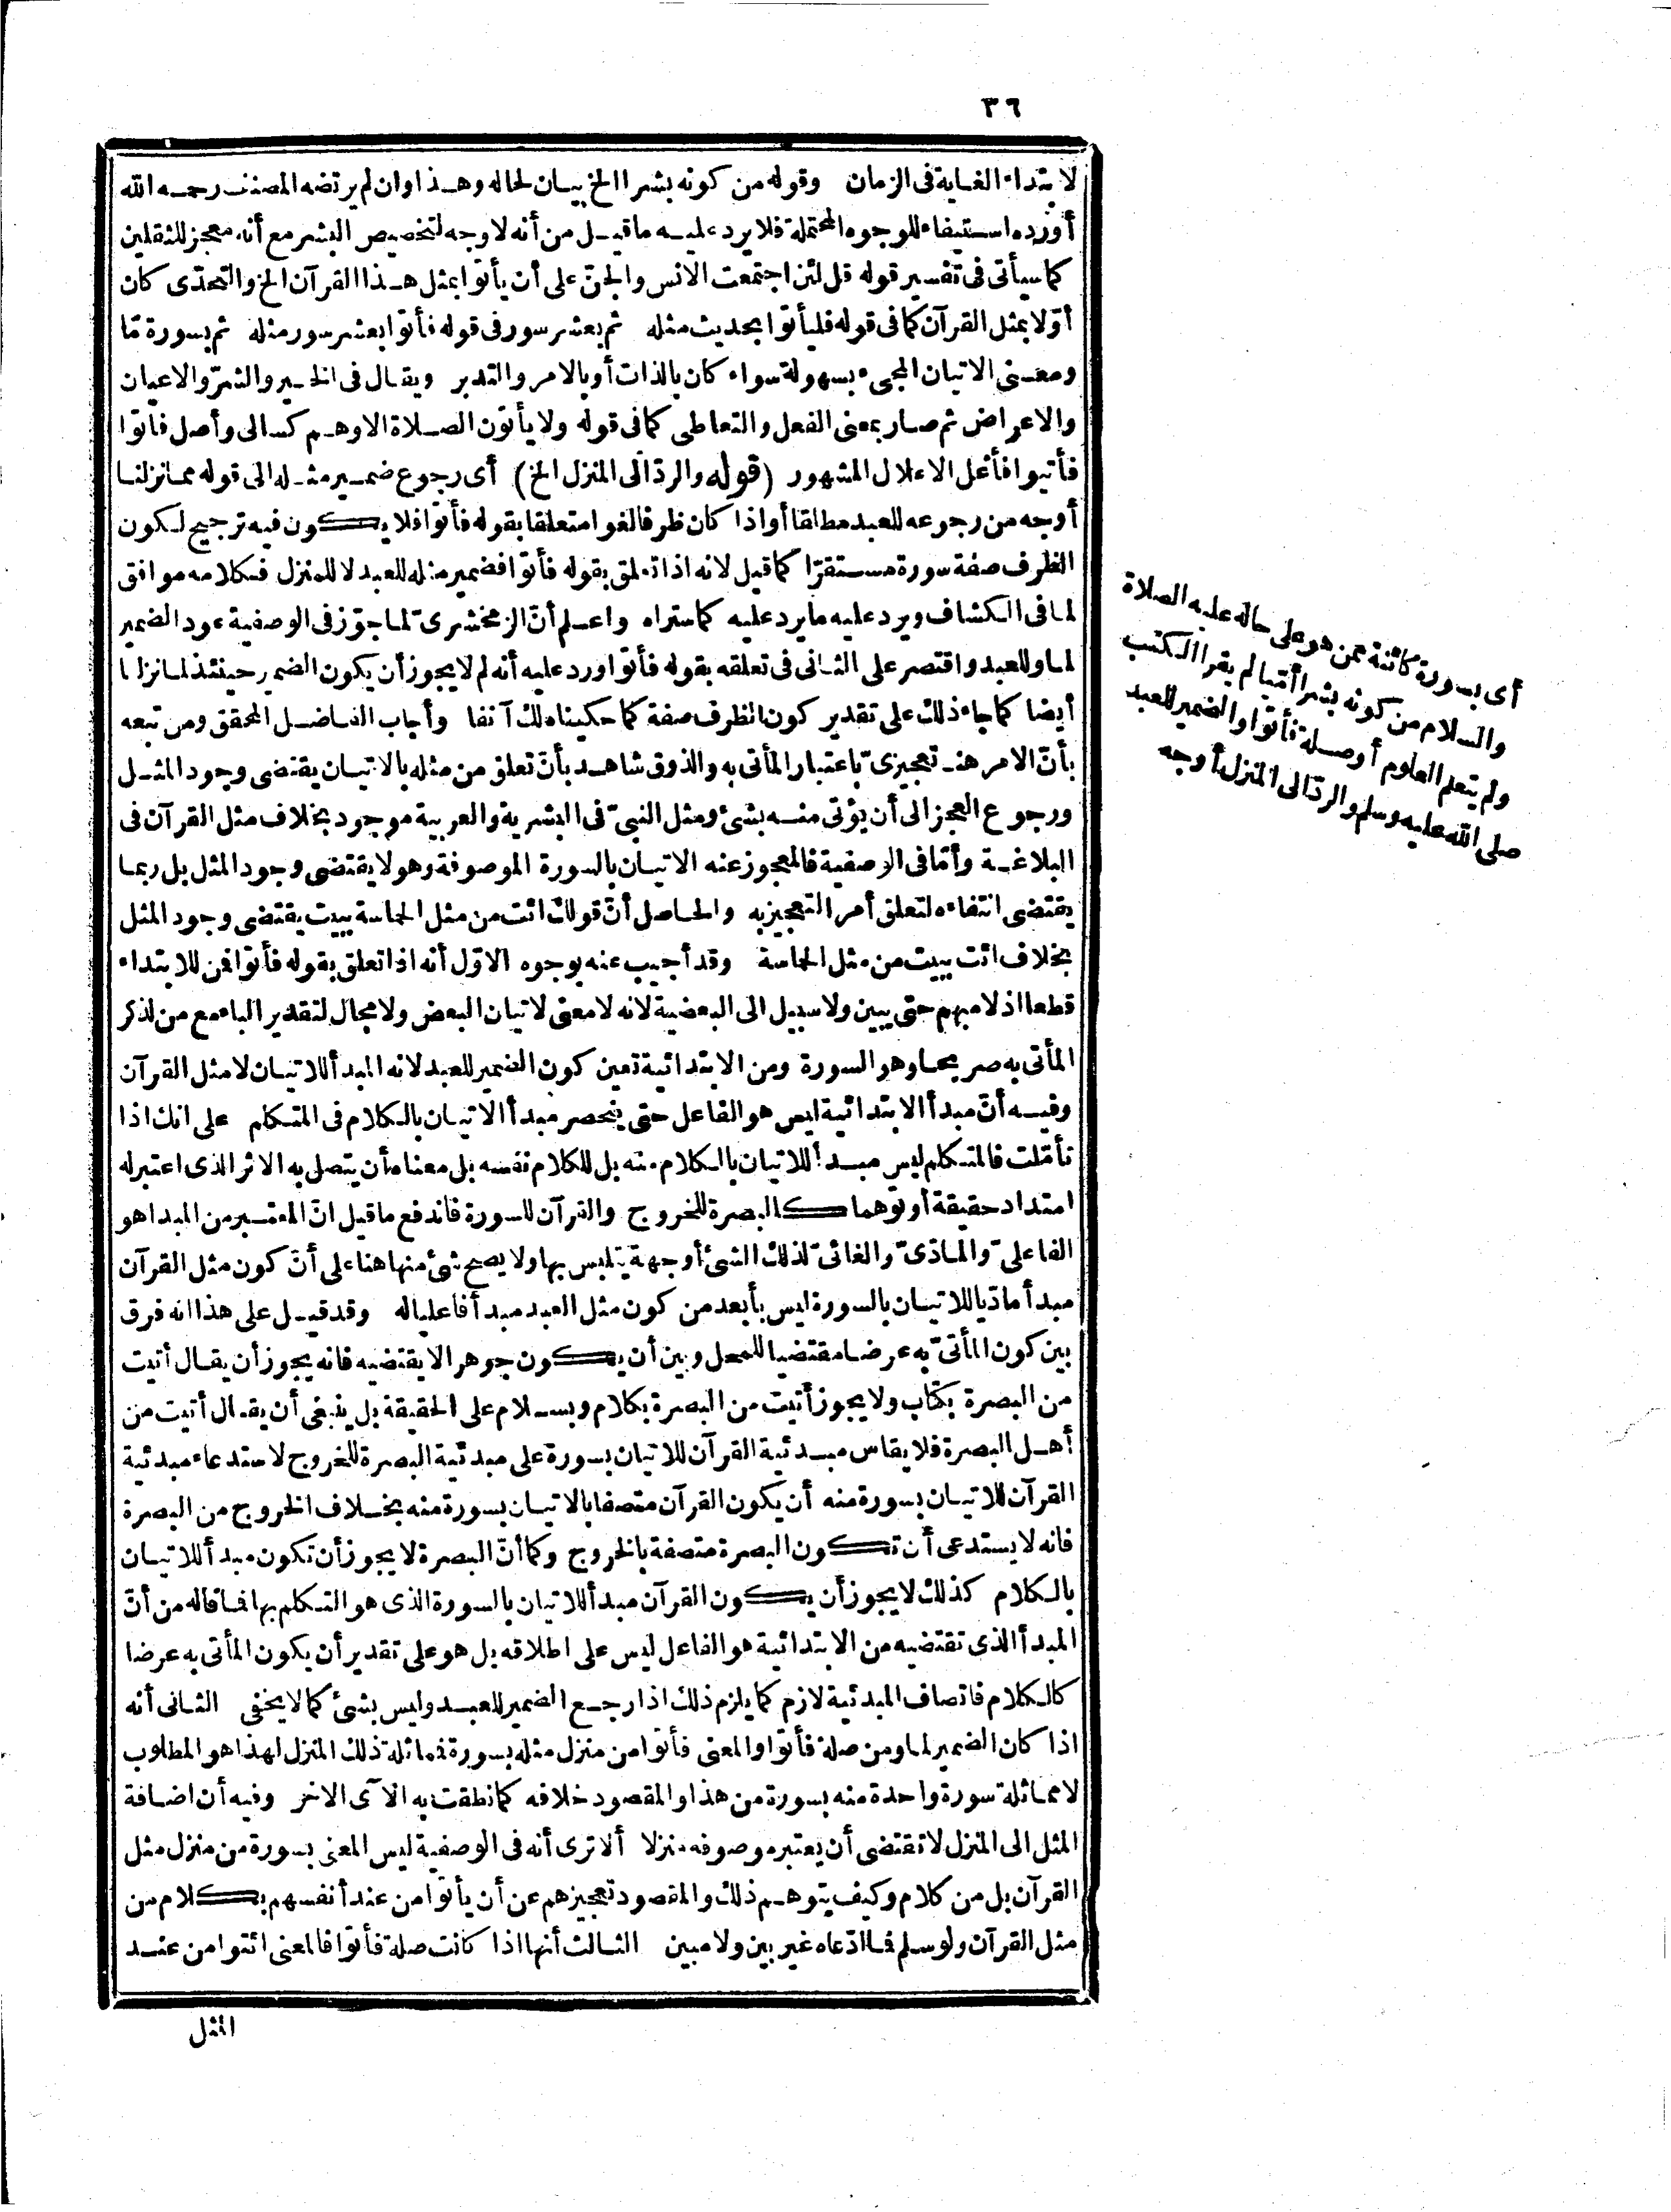 ٣٦
لابتداء الغاية فى الزمان وقوله من كونه بشرا الخ بيان لحاله وهذا وان لم يرتضه المصنف رحمه الله
أورده استيفاء للوجوه المحتملة فلا يرد عليه ما قيل من أنه لا وجه لتخصيص البشر مع أنه معجز للثقلين
كما سيأتى فى تفسير قوله قل لئن اجتمعت الانس والجنّ على أن يأتوا بمثل هذا القرآن الخ والتحدّى كان
أوّلا بمثل القرآن كما فى قوله فليأتوا بحديث مثله ثم بعشر سور فى قوله فأتوا بعشر سور مثله ثم بسورة مّا
ومعنى الاتيان المجىء بسهولة سواء كان بالذات أو بالامر والتدبر ويقال فى الخير والشرّ والاعيان
والاعراض ثم صار بمعنى الفعل والتعاطى كما فى قوله ولا يأتون الصلاة الا وهم كسالى وأصل فأتوا
فأتيوا فأعل الاعلال المشهور (قوله والردّ الى المنزل الخ) أى رجوع ضمير مثله الى قوله مما نزلنا
أوجه من رجوعه للعبد مطلقا أو اذا كان ظرفا لغوا متعلقا بقوله فأتوا فلا يكون فيه ترجيح لكون
الظرف صفة سورة مستقرّا كما قيل لانه اذا تعلق بقوله فأتوا فضمير مثله للعبد لا للمنزل فكلامه موافق
لما فى الكشاف ويرد عليه ما يرد عليه كما ستراه واعلم أنّ الزمخشرىّ لما جوّز فى الوصفية عود الضمير
لما وللعبد واقتصر على الثانى فى تعلقه بقوله فأتوا ورد عليه أنه لم لا يجوز أن يكون الضمير حينئذ لما نزلنا
أيضا كما جاء ذلك على تقدير كون الظرف صفة كما حكيناه لك آنفا وأجاب الفاضل المحقق ومن تبعه
بأنّ الامر هنا تعجيزىّ باعتبار المأتى به والذوق شاهد بأنّ تعلق من مثله بالاتيان يقتضى وجود المثل
ورجوع العجز الى أن يؤتى منه بشئ ومثل النبىّ فى البشرية والعربية موجود بخلاف مثل القرآن فى
البلاغة وأمّا فى الوصفية فالمعجوز عنه الاتيان بالسورة الموصوفة وهو لا يقتضى وجود المثل بل ربما
يقتضى انتفاءه لتعلق أمر التعجيز به والحاصل أنّ قولك ائت من مثل الحماسة ببيت يقتضى وجود المثل
بخلاف ائت ببيت من مثل الحماسة وقد أجيب عنه بوجوه الاوّل أنه اذا تعلق بقوله فأتوا فمن للابتداء
قطعا اذ لا مبهم حتى يبين ولا سبيل الى البعضية لانه لا معنى لاتيان البعض ولا مجال لتقدير الباء مع من لذكر
المأتى به صريحا وهو السورة ومن الابتدائية تعين كون الضمير للعبد لانه المبدأ للاتيان لا مثل القرآن
وفيه أنّ مبدأ الابتدائية ليس هو الفاعل حتى ينحصر مبدأ الاتيان بالكلام فى المتكلم على انك اذا
تأمّلت فالمتكلم ليس مبدأ للاتيان بالكلام منه بل للكلام نفسه بل معناه أن يتصل به الاثر الذى اعتبر له
امتداد حقيقة أو توهما كالبصرة للخروج والقرآن للسورة فاندفع ما قيل انّ المعتبر من المبدا هو
الفاعلىّ والمادّىّ والغائىّ لذلك الشئ أو جهة يتلبس بها ولا يصح شئ منها هنا على أنّ كون مثل القرآن
مبدأ مادّيا للاتيان بالسورة ليس بأبعد من كون مثل العبد مبدأ فاعليا له وقد قيل على هذا انه فرق
بين كون المأتىّ به عرضا مقتضيا للمحل وبين أن يكون جوهرا لا يقتضيه فانه يجوز أن يقال أتيت
من البصرة بكتاب ولا يجوز أتيت من البصرة بكلام وبسلام على الحقيقة بل ينبغى أن يقال أتيت من
أهل البصرة فلا يقاس مبدئية القرآن للاتيان بسورة على مبدئية البصرة للخروج لاستدعاء مبدئية
القرآن للاتيان بسورة منه أن يكون القرآن متصفا بالاتيان بسورة منه بخلاف الخروج من البصرة
فانه لا يستدعى أن تكون البصرة متصفة بالخروج وكما أنّ البصرة لا يجوز أن تكون مبدأ للاتيان
بالكلام كذلك لا يجوز أن يكون القرآن مبدأ للاتيان بالسورة الذى هو التكلم بها فما قاله من أنّ
المبدأ الذى تقتضيه من الابتدائية هو الفاعل ليس على اطلاقه بل هو على تقدير أن يكون المأتى به عرضا
كالكلام فاتصاف المبدئية لازم كما يلزم ذلك اذا رجع الضمير للعبد وليس بشئ كما لا يخفى الثانى أنه
اذا كان الضمير لما ومن صلة فأتوا والمعنى فأتوا من منزل مثله بسورة فمماثلة ذلك المنزل لهذا هو المطلوب
لا مماثلة سورة واحدة منه بسورة من هذا والمقصود خلافه كما نطقت به الآى الاخر وفيه أن اضافة
المثل الى المنزل لا تقتضى أن يعتبر موصوفه منزلا ألا ترى أنه فى الوصفية ليس المعنى بسورة من منزل مثل
القرآن بل من كلام وكيف يتوهم ذلك والمقصود تعجيزهم عن أن يأتوا من عند أنفسهم بكلام من
مثل القرآن ولو سلم فما ادّعاه غير بين ولا مبين الثالث أنها اذا كانت صلة فأتوا فالمعنى ائتوا من عند
المثل
أى بسورة كائنة ممن هو على حاله عليه الصلاة
والسلام من كونه بشرا أمّيا لم يقرا الكتب
ولم يتعلم العلوم أو صلة فأتوا والضمير للعبد
صلى الله عليه وسلم والردّ الى المنزل أوجه